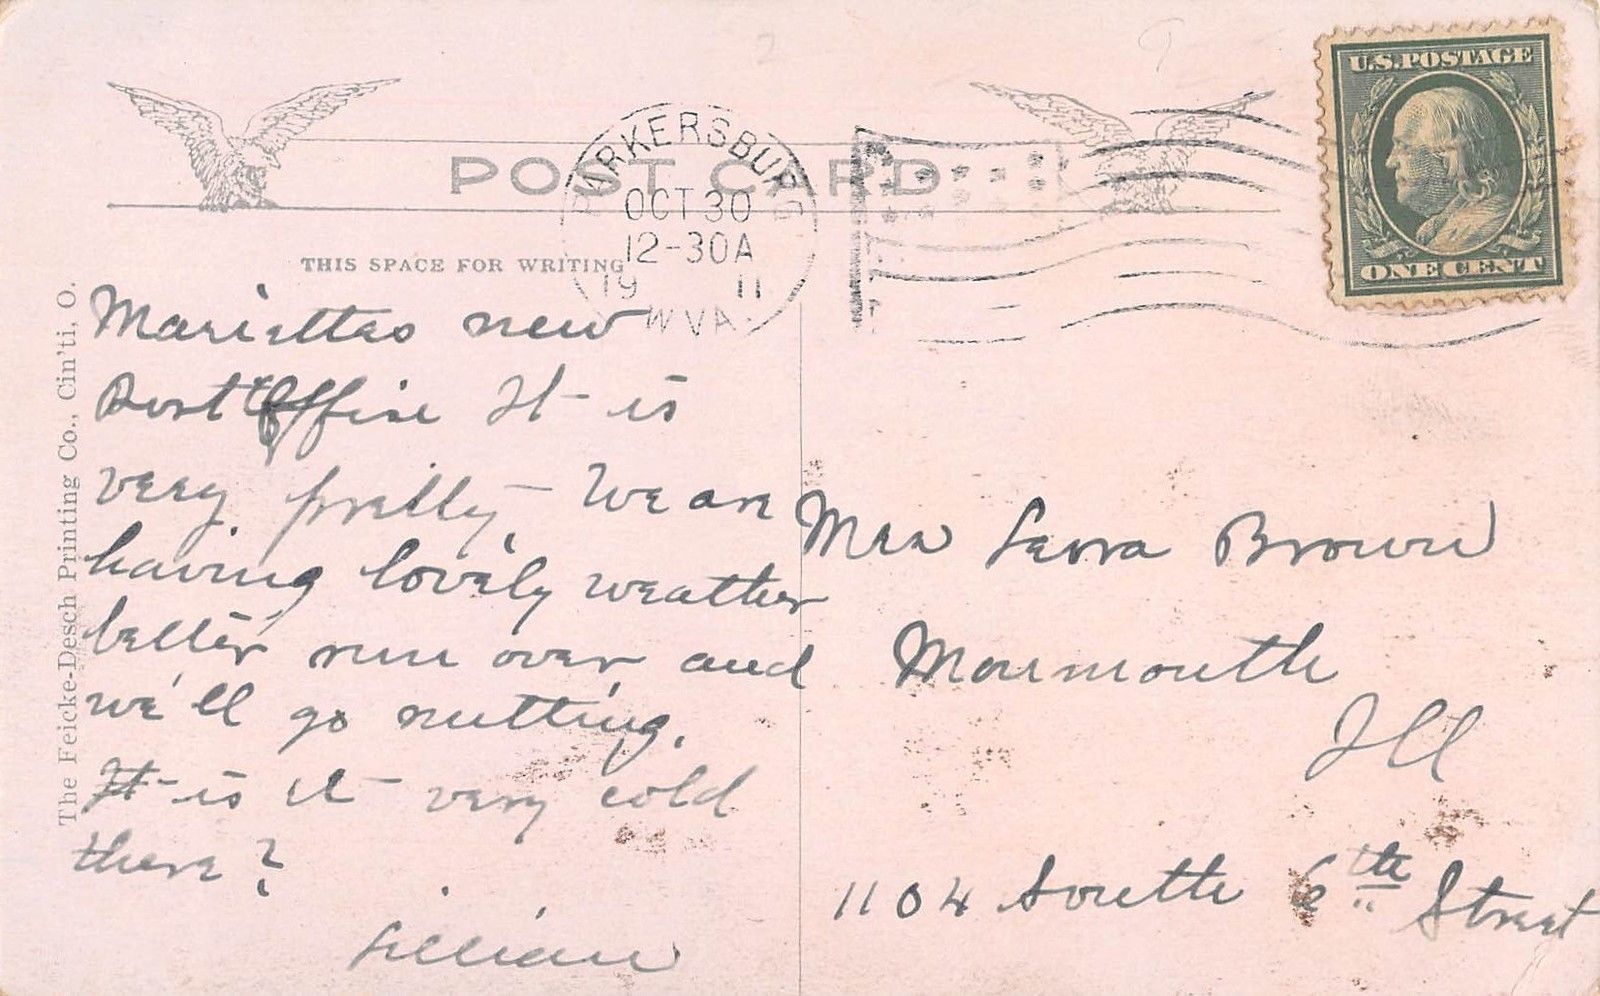 U.S.POSTAGE
ONE CENT
POST CARD
PARKERSBURG
OCT 30
12-30A
19 11
W VA.
THIS SPACE FOR WRITING
The Feicke-Desch Printing Co., Cin'ti, O.
Mariettas new
Post Office It is
very pretty - We are
having lovely weather
better run over and
we'll go nutting.
It is it very cold
there?
Lillian
Mrs Brown
Monmouth
Ill
1104 South 6th Street